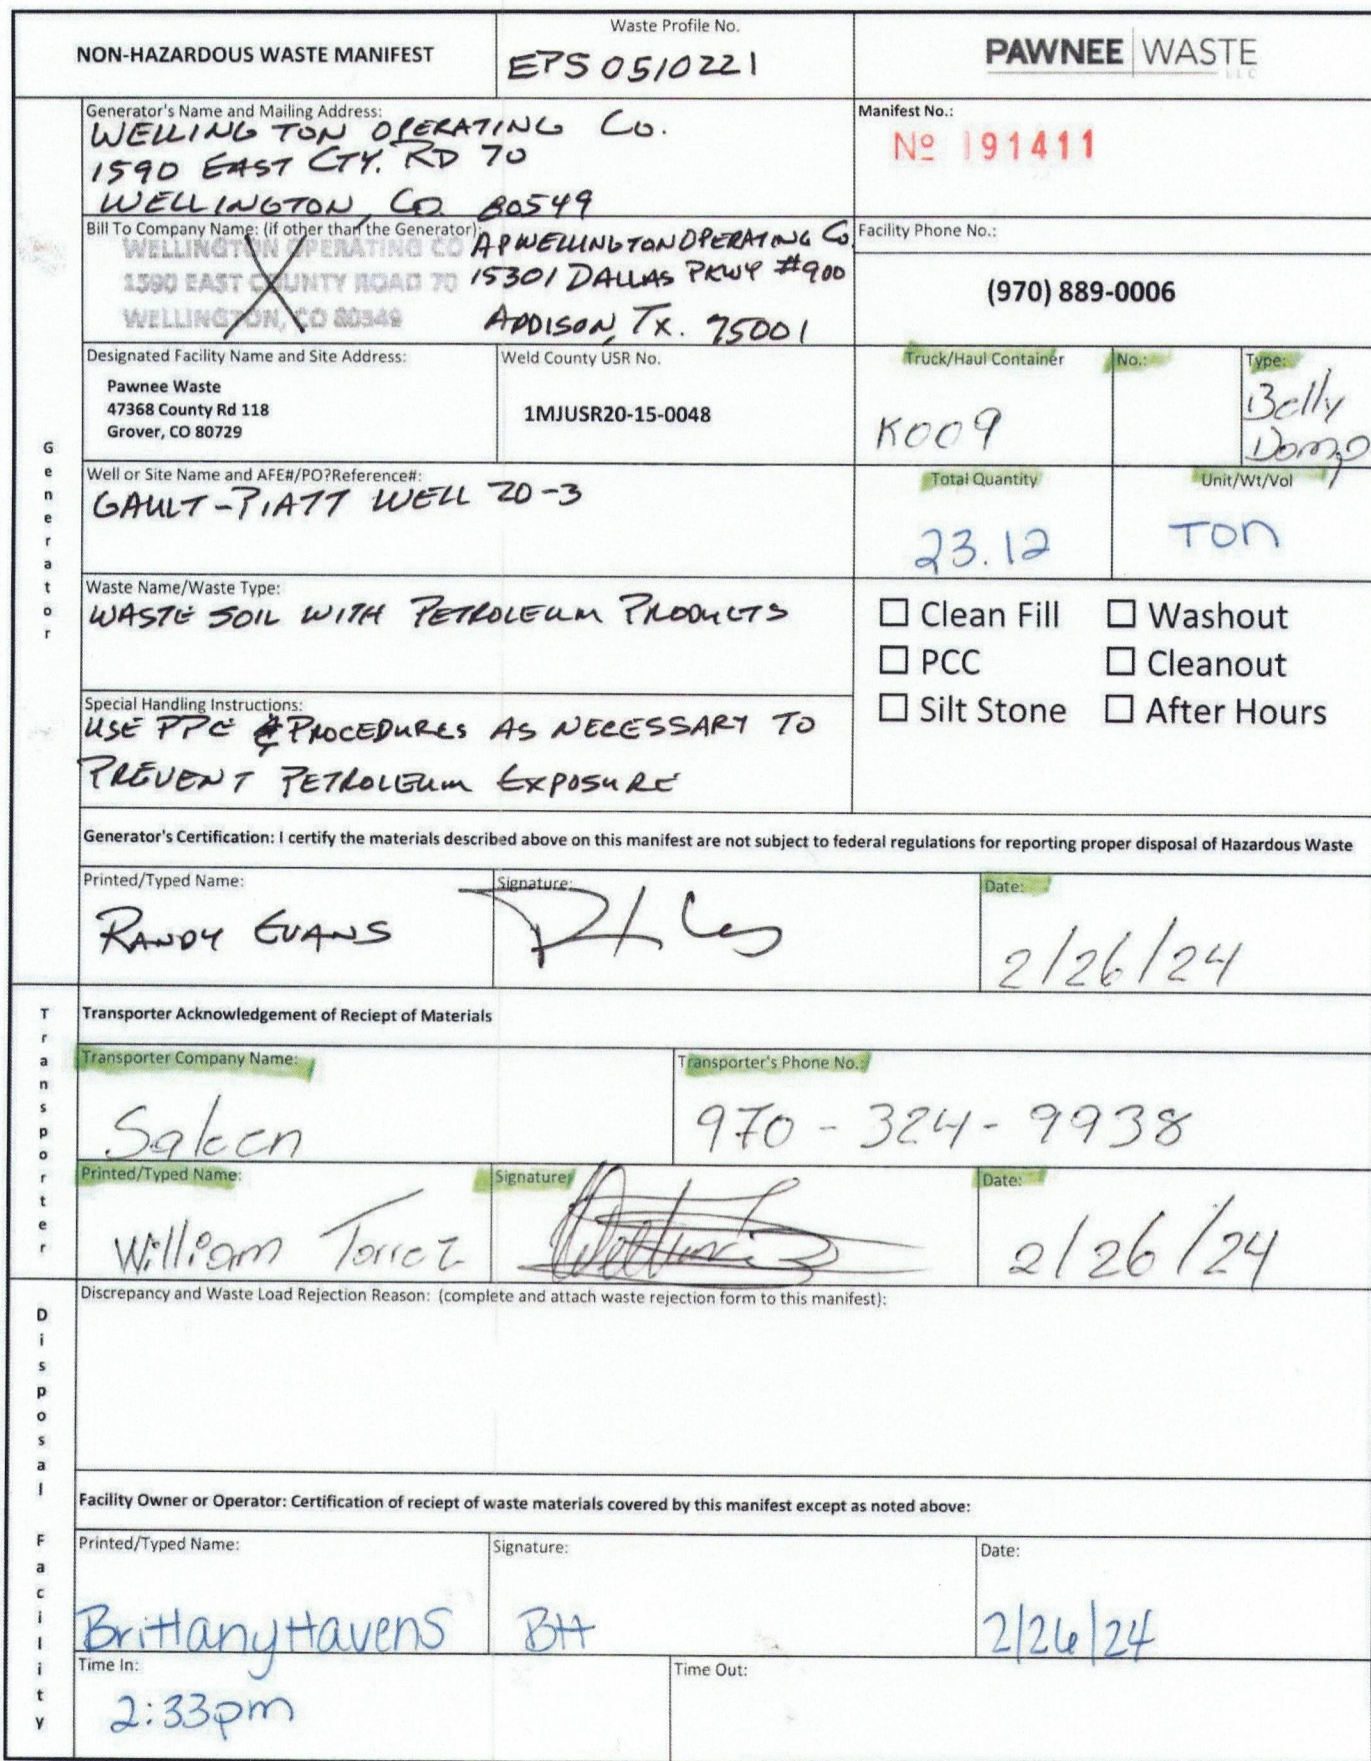 NON-HAZARDOUS WASTE MANIFEST
Waste Profile No.
EPS 0510221
PAWNEE WASTE
LLC
Generator's Name and Mailing Address:
WELLINGTON OPERATING CO.
1590 EAST CTY. RD 70
WELLINGTON, CO. 80549
Manifest No.:
Nº 191411
Bill To Company Name: (if other than the Generator):
WELLINGTON OPERATING CO
1590 EAST COUNTY ROAD 70
WELLINGTON, CO 80549
AP WELLINGTON OPERATING CO
15301 DALLAS PKWY #900
ADDISON, TX. 75001
Facility Phone No.:
(970) 889-0006
Designated Facility Name and Site Address:
Pawnee Waste
47368 County Rd 118
Grover, CO 80729
Weld County USR No.
1MJUSR20-15-0048
Truck/Haul Container
K009
No.:
Type:
Belly
Domp
Well or Site Name and AFE#/PO?Reference#:
GAULT-PIATT WELL 20-3
Total Quantity
23.12
Unit/Wt/Vol
TON
Waste Name/Waste Type:
WASTE SOIL WITH PETROLEUM PRODUCTS
Clean Fill
Washout
PCC
Cleanout
Silt Stone
After Hours
Special Handling Instructions:
USE PPE & PROCEDURES AS NECESSARY TO
PREVENT PETROLEUM EXPOSURE
Generator's Certification: I certify the materials described above on this manifest are not subject to federal regulations for reporting proper disposal of Hazardous Waste
Printed/Typed Name:
RANDY EVANS
Signature:
Date:
2/26/24
Transporter Acknowledgement of Reciept of Materials
Transporter Company Name:
Saken
Transporter's Phone No.:
970-324-9938
Printed/Typed Name:
William Torrez
Signature
Date:
2/26/24
Discrepancy and Waste Load Rejection Reason: (complete and attach waste rejection form to this manifest):
Facility Owner or Operator: Certification of reciept of waste materials covered by this manifest except as noted above:
Printed/Typed Name:
Brittany Havens
Signature:
BH
Date:
2/26/24
Time In:
2:33pm
Time Out:
Generator
Transporter
Disposal Facility